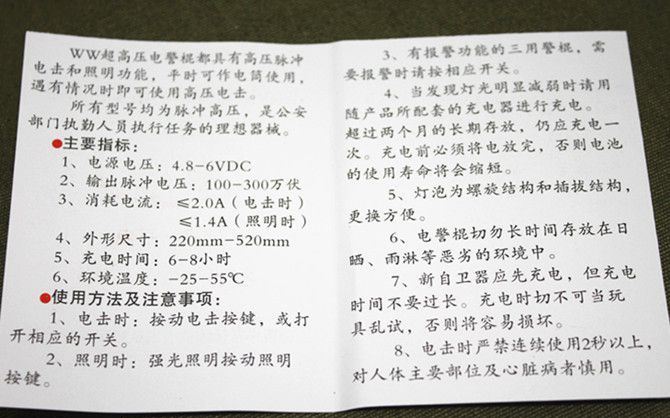 WW超高压电警棍都具有高压脉冲
电击和照明功能，平时可作电筒使用，
遇有情况时即可使用高压电击。
所有型号均为脉冲高压，是公安
部门执勤人员执行任务的理想器械。
●主要指标：
1、电源电压：4.8-6VDC
2、输出脉冲电压：100-300万伏
3、消耗电流：≤2.0A（电击时）
≤1.4A（照明时）
4、外形尺寸：220mm-520mm
5、充电时间：6-8小时
6、环境温度：-25-55℃
●使用方法及注意事项：
1、电击时：按动电击按键，或打
开相应的开关。
2、照明时：强光照明按动照明
按键。
3、有报警功能的三用警棍，需
要报警时请按相应开关。
4、当发现灯光明显减弱时请用
随产品所配套的充电器进行充电。
超过两个月的长期存放，仍应充电一
次。充电前必须将电放完，否则电池
的使用寿命将会缩短。
5、灯泡为螺旋结构和插拔结构，
更换方便。
6、电警棍切勿长时间存放在日
晒、雨淋等恶劣的环境中。
7、新自卫器应先充电，但充电
时间不要过长。充电时切不可当玩
具乱试，否则将容易损坏。
8、电击时严禁连续使用2秒以上，
对人体主要部位及心脏病者慎用。